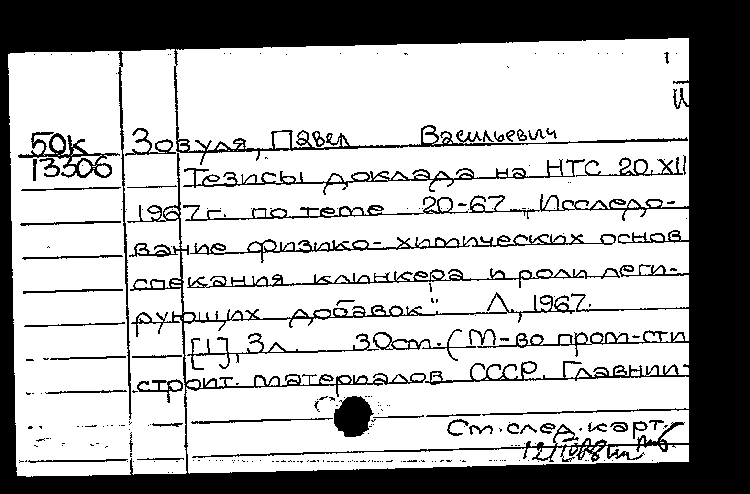 50К
13306
Зозуля, Павел Васильевич
Тезисы доклада на НТС 20.XII
1967г. по теме 20-67 „Исследо-
вание физико-химических основ
спекания клинкера и роли леги-
рующих добавок". Л., 1967.
[1], 3 л. 30см. (М-во пром-сти
строит. материалов СССР. Главнии-
См. след. карт.